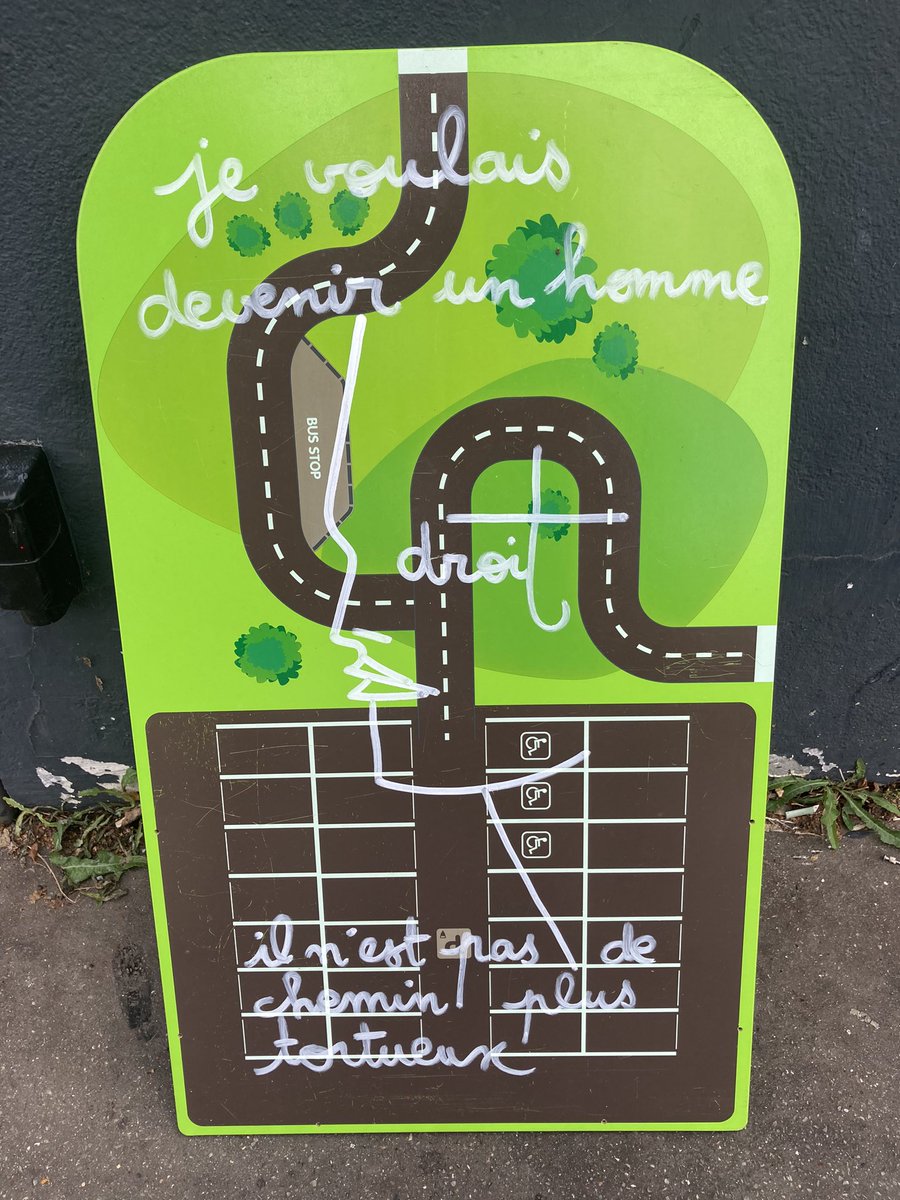 je voulais
devenir un homme
BUS STOP
droit
il n'est pas de
chemin plus
tortueux